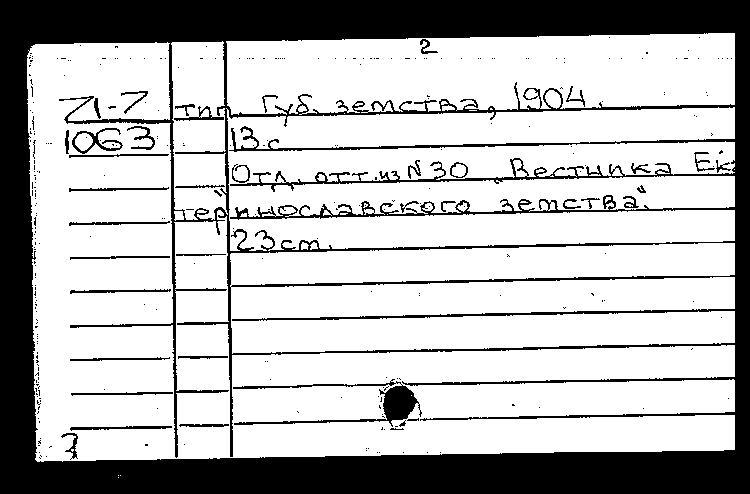 2
Z1-7 тип. Губ. земства, 1904.
1063 13.с
Отд. отт. из N30 „Вестника Ека
теринославского земства".
23 cm.